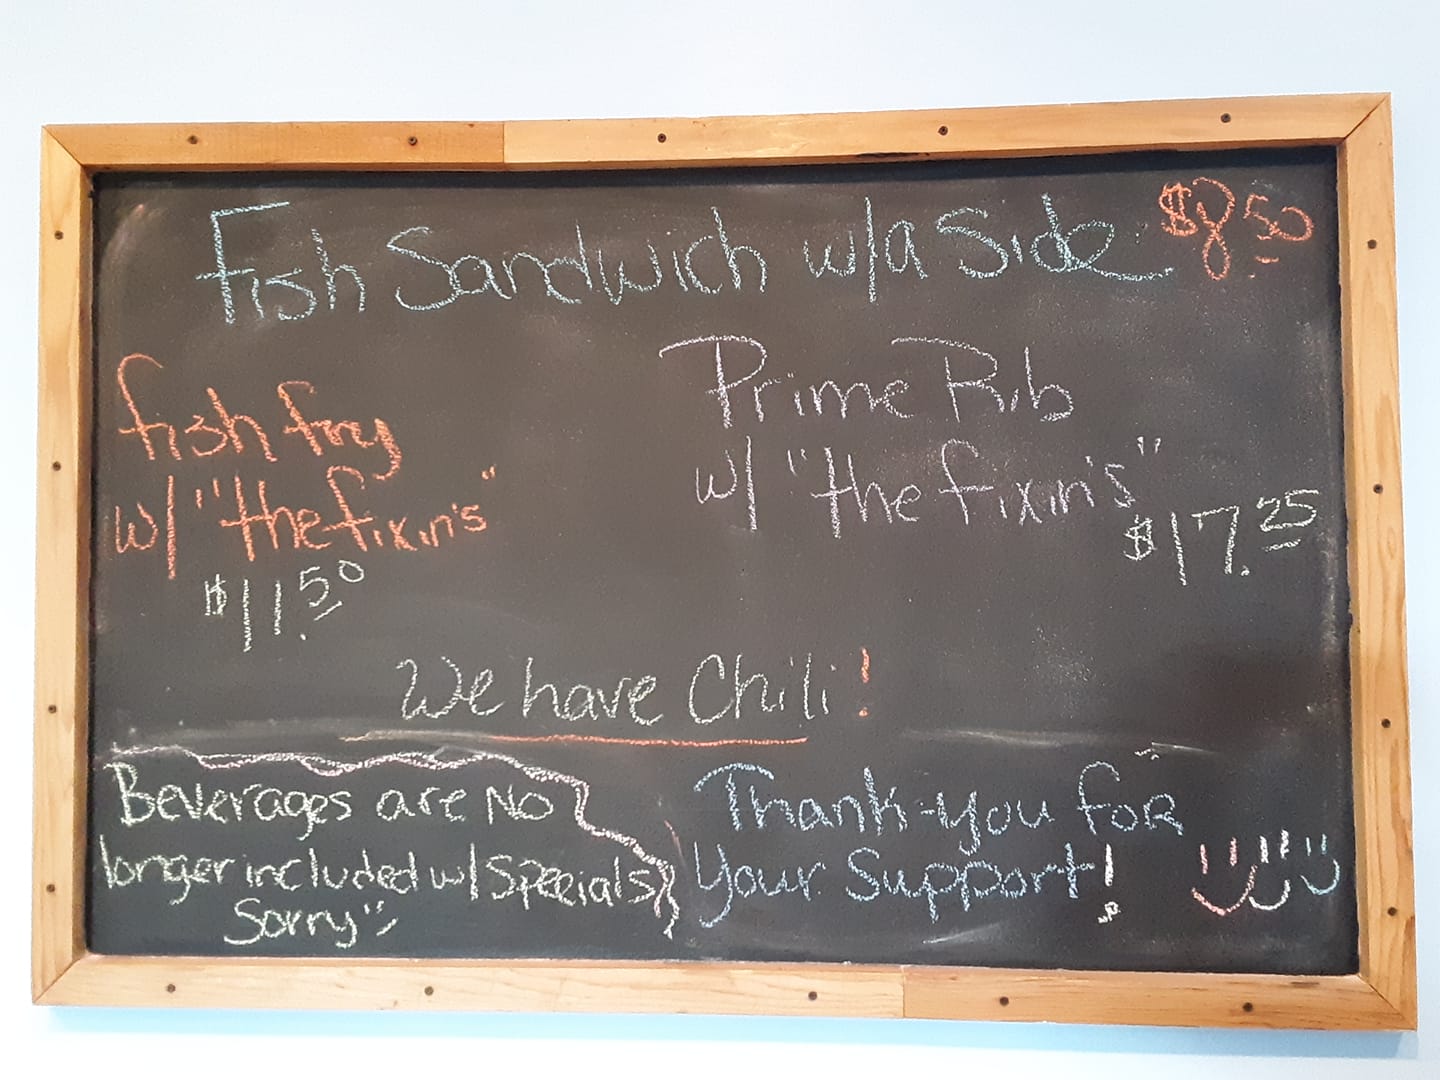 Fish Sandwich w/a Side $8.50
fish fry
w/ "the fixin's"
$11.50
Prime Rib
w/ "the fixin's"
$17.25
We have Chili!
Beverages are No
longer included w/ Specials
Sorry
Thank-you for
Your Support!